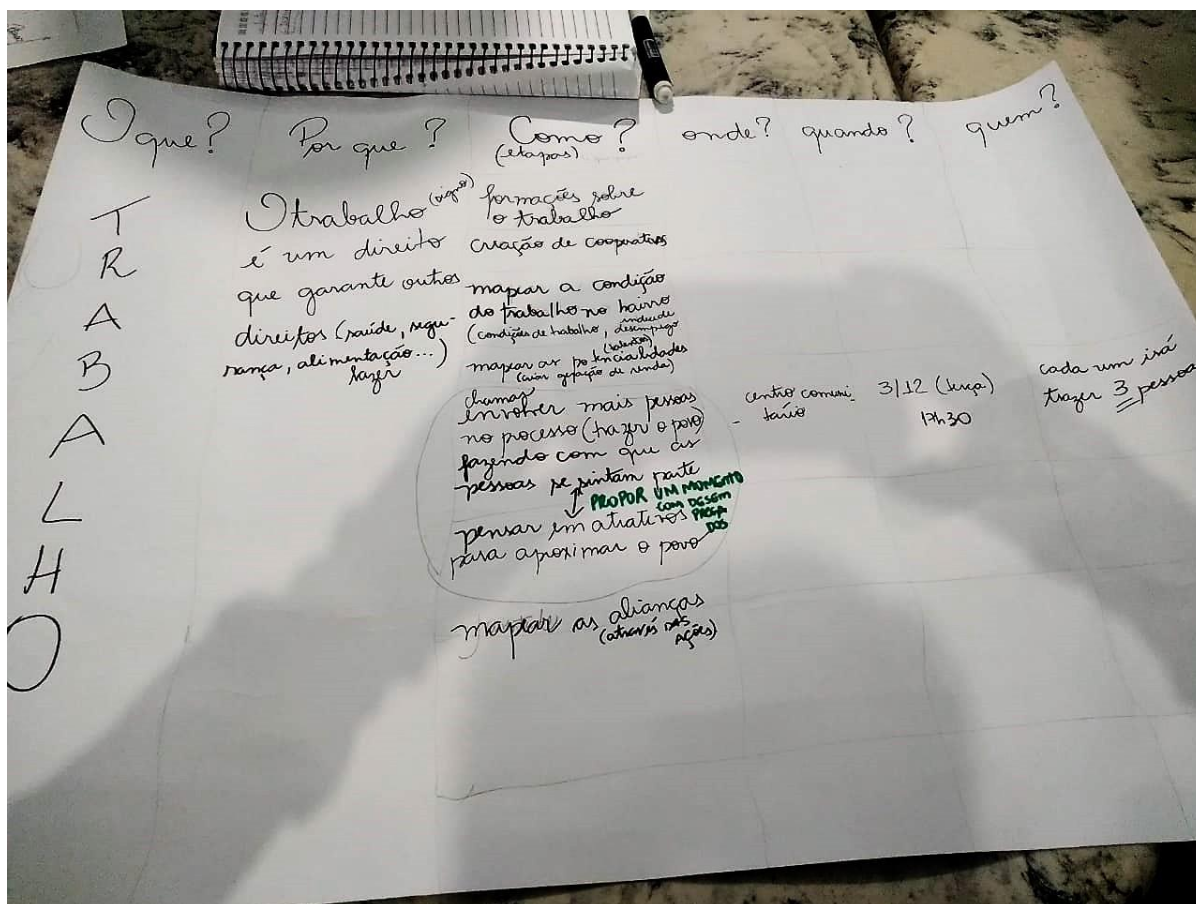 O que?
Por que?
Como?
(etapas)
onde?
quando?
quem?
TRABALHO
O trabalho (digno)
é um direito
que garante outros
direitos (saúde, segu-
rança, alimentação...)
lazer
formações sobre
o trabalho
criação de cooperativas
mapear a condição
do trabalho no bairro
(condições de trabalho, índice de desemprego
(talentos)
mapear as potencialidades
(criar geração de renda)
chamar
envolver mais pessoas
no processo (trazer o povo)
fazendo com que as
pessoas se sintam parte
PROPOR UM MOMENTO
COM DESEM
PREGA
DOS
pensar em atrativos
para aproximar o povo
mapear as alianças
(através das
ações)
centro comuni-
tário
3/12 (terça)
17h30
cada um irá
trazer 3 pessoa